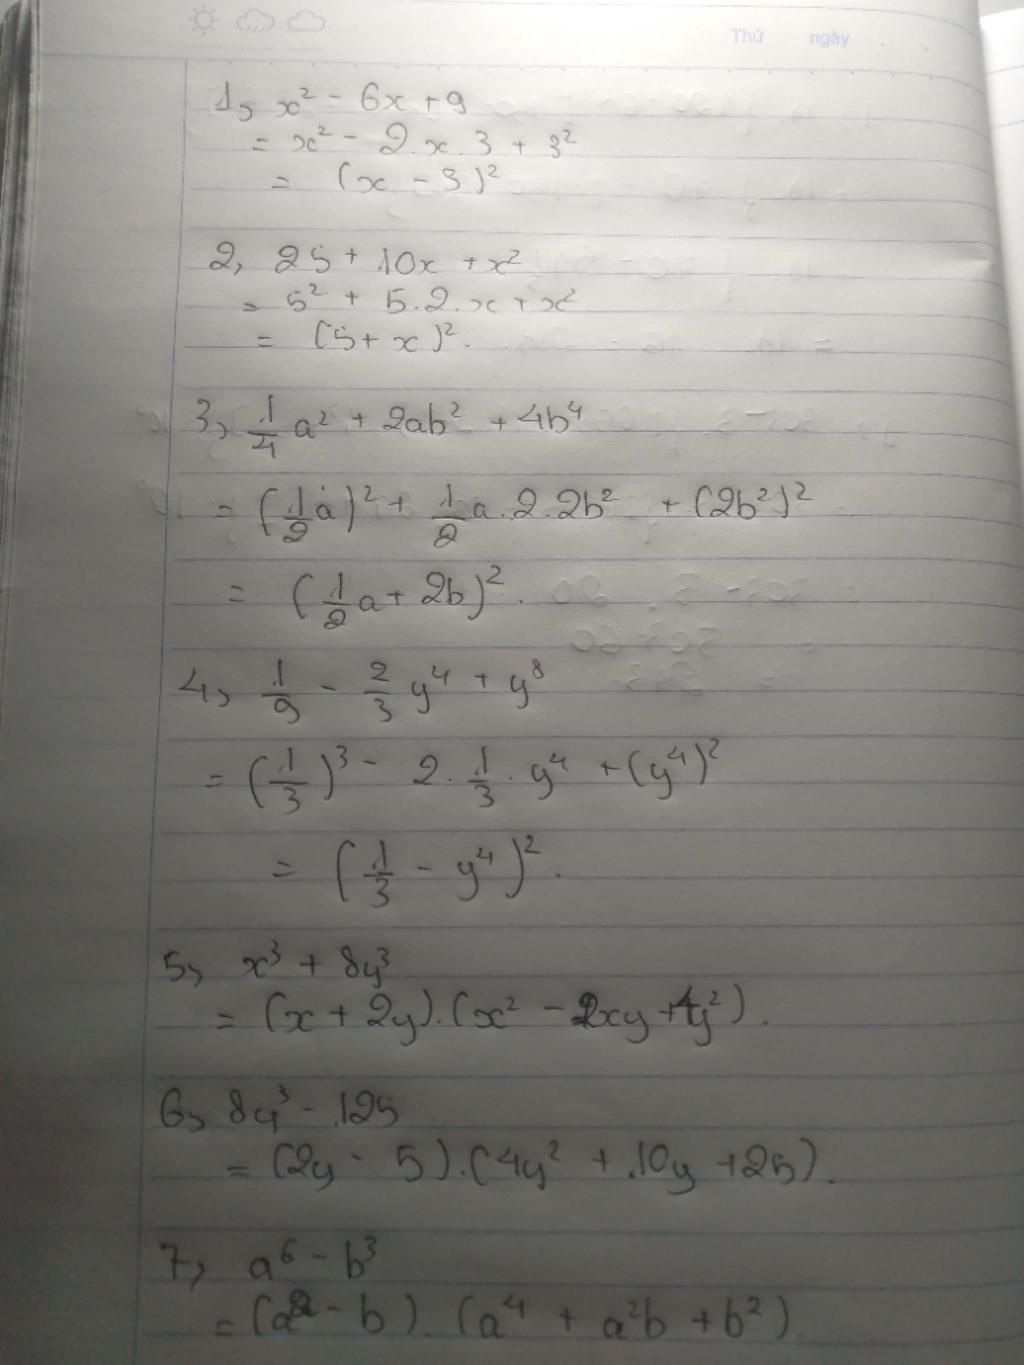 Thứ ngày
1, x² - 6x + 9
= x² - 2.x.3 + 3²
= (x - 3)²
2, 25 + 10x + x²
= 5² + 5.2.x + x²
= (5 + x)².
3, 1/4 a² + 2ab² + 4b⁴
= (1/2 a)² + 1/2 a.2.2b² + (2b²)²
= (1/2 a + 2b)².
4, 1/9 - 2/3 y⁴ + y⁸
= (1/3)³ - 2.1/3.y⁴ + (y⁴)²
= (1/3 - y⁴)².
5, x³ + 8y³
= (x + 2y).(x² - 2xy + 4y²).
6, 8y³ - 125
= (2y - 5).(4y² + 10y + 25).
7, a⁶ - b³
= (a² - b).(a⁴ + a²b + b²).